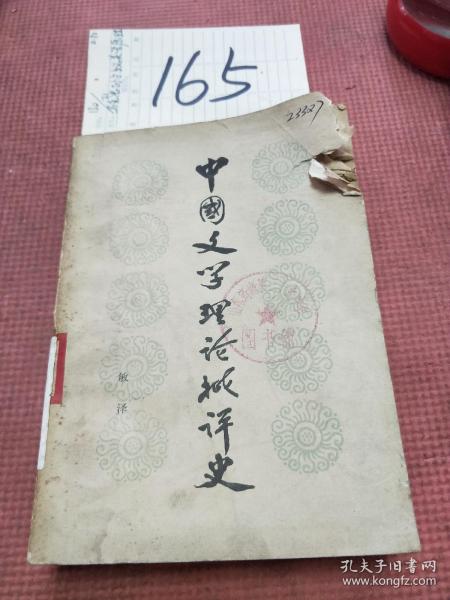 165
23327
中國文学理论批评史
敏泽
孔夫子旧书网
www.kongfz.com